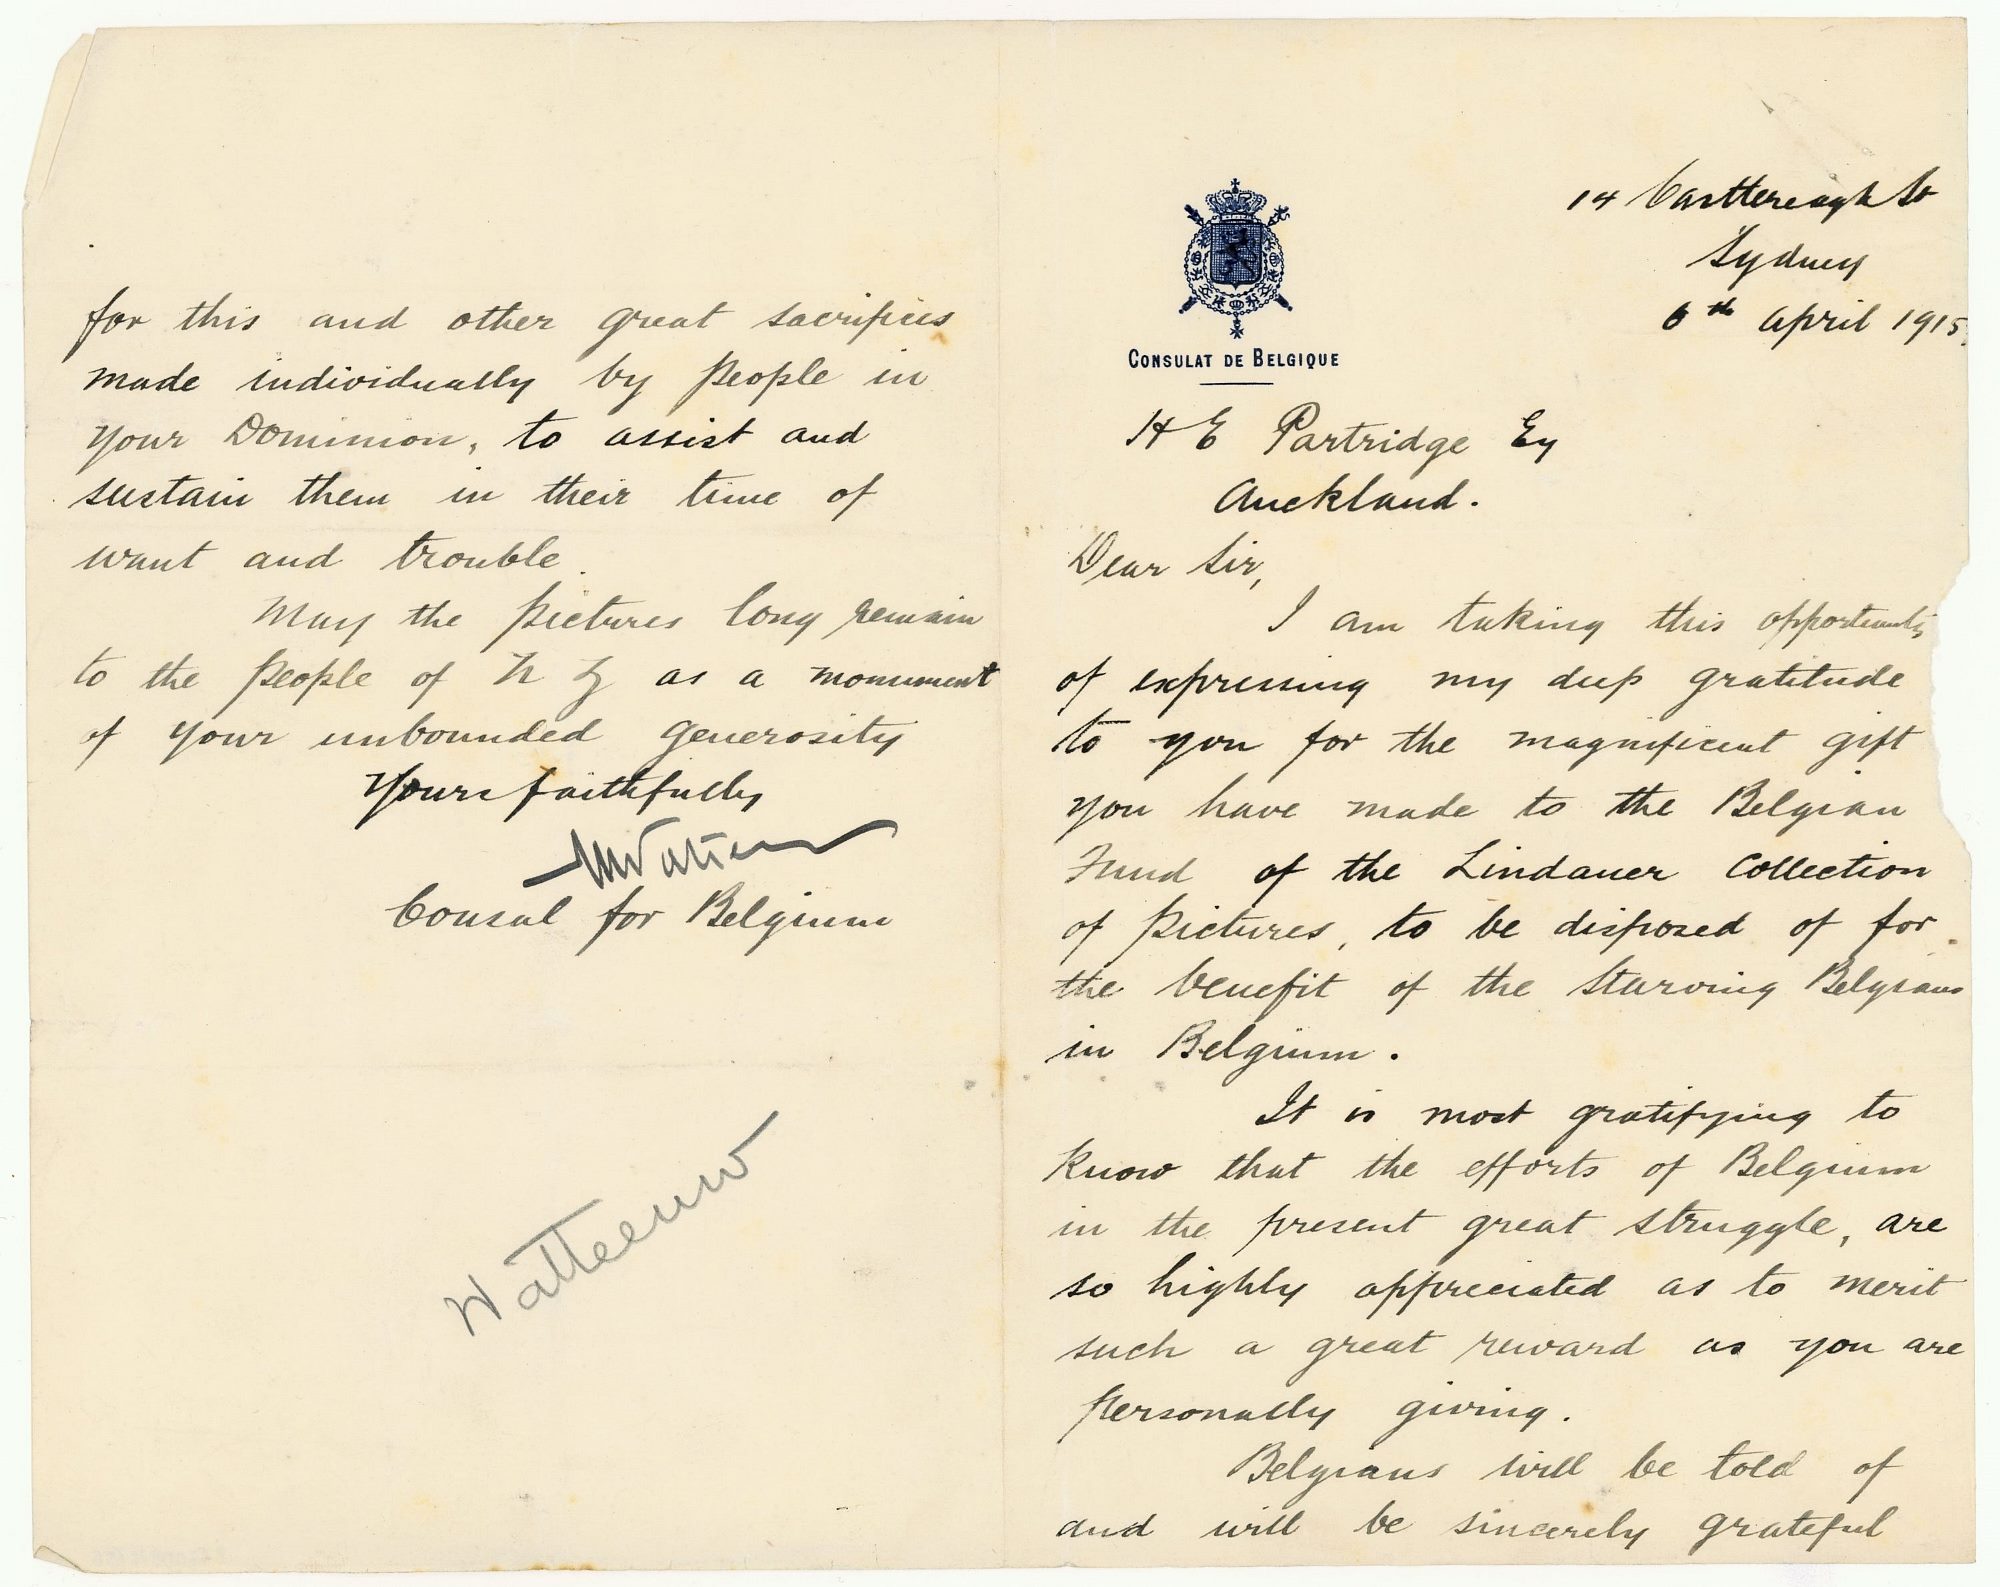 14 Castlereagh St
Sydney
6th April 1915.
CONSULAT DE BELGIQUE
H E Partridge Esq
Auckland.
Dear Sir,
I am taking this opportunity
of expressing my deep gratitude
to you for the magnificent gift
you have made to the Belgian
Fund of the Lindauer Collection
of pictures, to be disposed of for
the benefit of the starving Belgians
in Belgium.
It is most gratifying to
know that the efforts of Belgium
in the present great struggle, are
so highly appreciated as to merit
such a great reward as you are
personally giving.
Belgians will be told of
and will be sincerely grateful
for this and other great sacrifices
made individually by people in
your Dominion, to assist and
sustain them in their time of
want and trouble.
May the pictures long remain
to the people of N Z as a monument
of your unbounded generosity
Yours faithfully
Consul for Belgium
Watteeuw